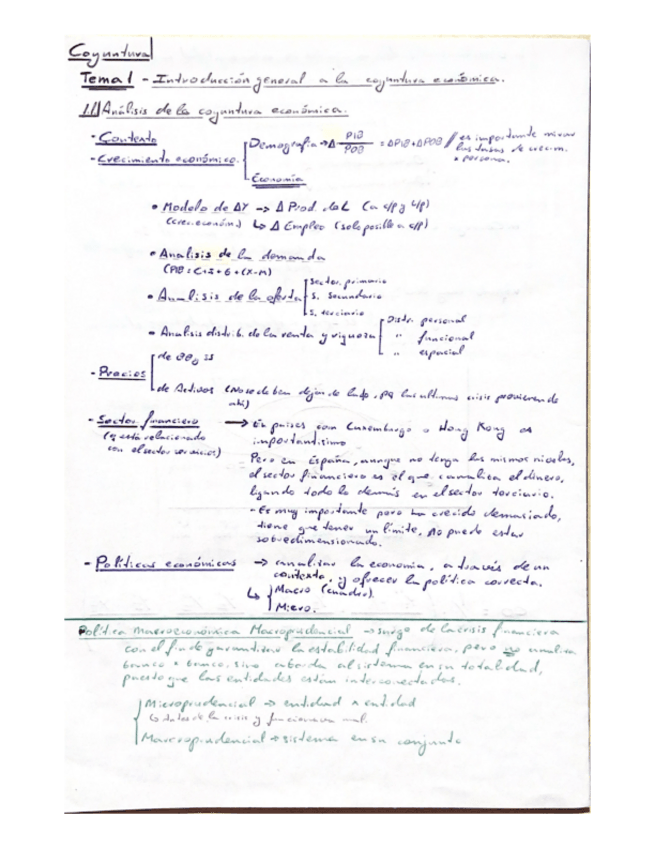 Coyuntura
Tema 1 - Introducción general a la coyuntura económica.
1.1 Análisis de la coyuntura económica.
- Contexto
- Crecimiento económico. Demografía → Δ PIB/POB = ΔPIB - ΔPOB // es importante mirar las tasas de crecim. x persona.
Economía
• Modelo de ΔY → Δ Prod. del L (a c/p y l/p)
(crec. económ.) ↳ Δ Empleo (solo posible a c/p)
• Analisis de la demanda
(PIB = C+I+G+(X-M))
• Analisis de la oferta
Sector primario
S. Secundario
S. terciario
• Analisis distrib. de la renta y riqueza
Distr. personal
" funcional
" espacial
- Precios
de BB y SS
de Activos (No se deben dejar de lado, pq las ultimas crisis provienen de ahí)
- Sector financiero → En países como Luxemburgo o Hong Kong es
(q está relacionado importantísimo
con el sector servicios)
Pero en España, aunque no tenga los mismos niveles,
el sector financiero es el que canaliza el dinero,
ligando todo lo demás en el sector terciario.
- Es muy importante pero ha crecido demasiado,
tiene que tener un límite, no puede estar
sobredimensionado.
- Políticas económicas → analizar la economía, a través de un
contexto, y ofrecer la política correcta.
↳ Macro (cuadro).
Micro.
Política macroeconómica Macroprudencial → surge de la crisis financiera
con el fin de garantizar la estabilidad financiera, pero no analiza
banco x banco, sino aborda al sistema en su totalidad,
puesto que las entidades están interconectadas.
Microprudencial → entidad x entidad
↳ antes de la crisis y funcionaba mal.
Macroprudencial → sistema en su conjunto